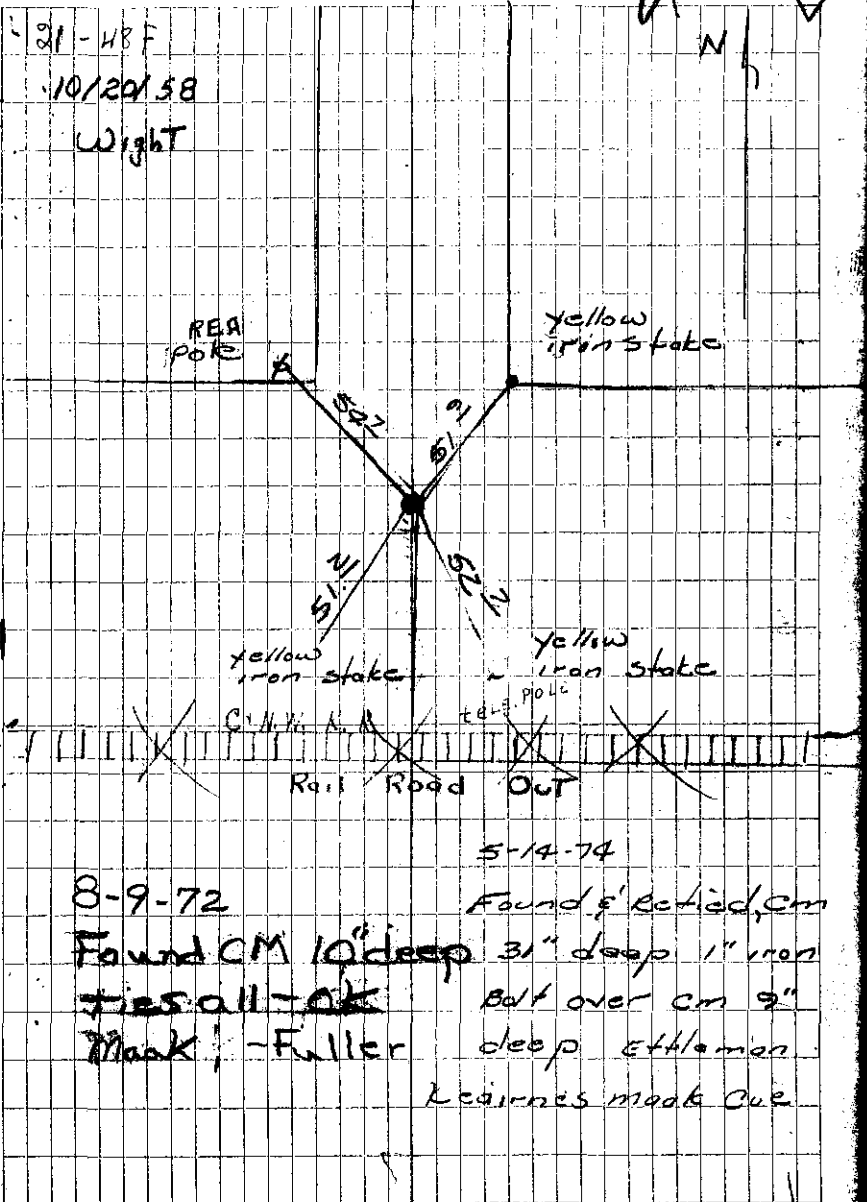 21-48F
N
10/20/58
Wight
REA
Pole
yellow
iron stake
547
51.9
51.21
62
yellow
iron stake
yellow
iron stake
tele. pole
C. N.W. R.R
Rail Road Out
8-9-72
Found CM 10" deep
ties all - OK
Maak ; - Fuller
5-14-74
Found & Retied, Cm
31" deep 1" iron
Bolt over cm 9"
deep Ettleman
Kearnes maak Cue